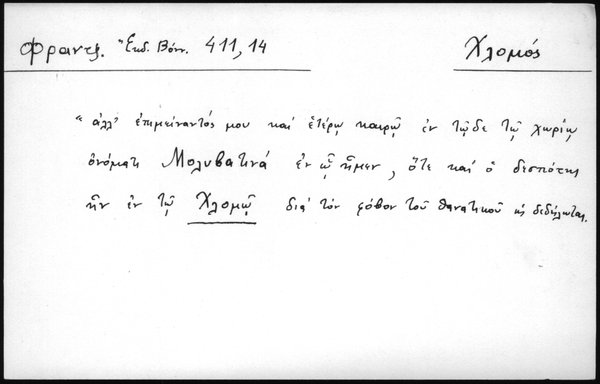 Φραντζ. Ἔκδ. Βόνν. 411,14 Χλομός
"ἀλλ' ἐπιμείναντός μου καὶ ἑτέρῳ καιρῷ ἐν τῷδε τῷ χωρίῳ
ὀνόματι Μολυβατινά ἐν ᾧ ἦμεν, ὅτε καὶ ὁ δεσπότης
ἦν ἐν τῷ Χλομῷ διὰ τὸν φόβον τοῦ θανατικοῦ ὡς δεδήλωται.